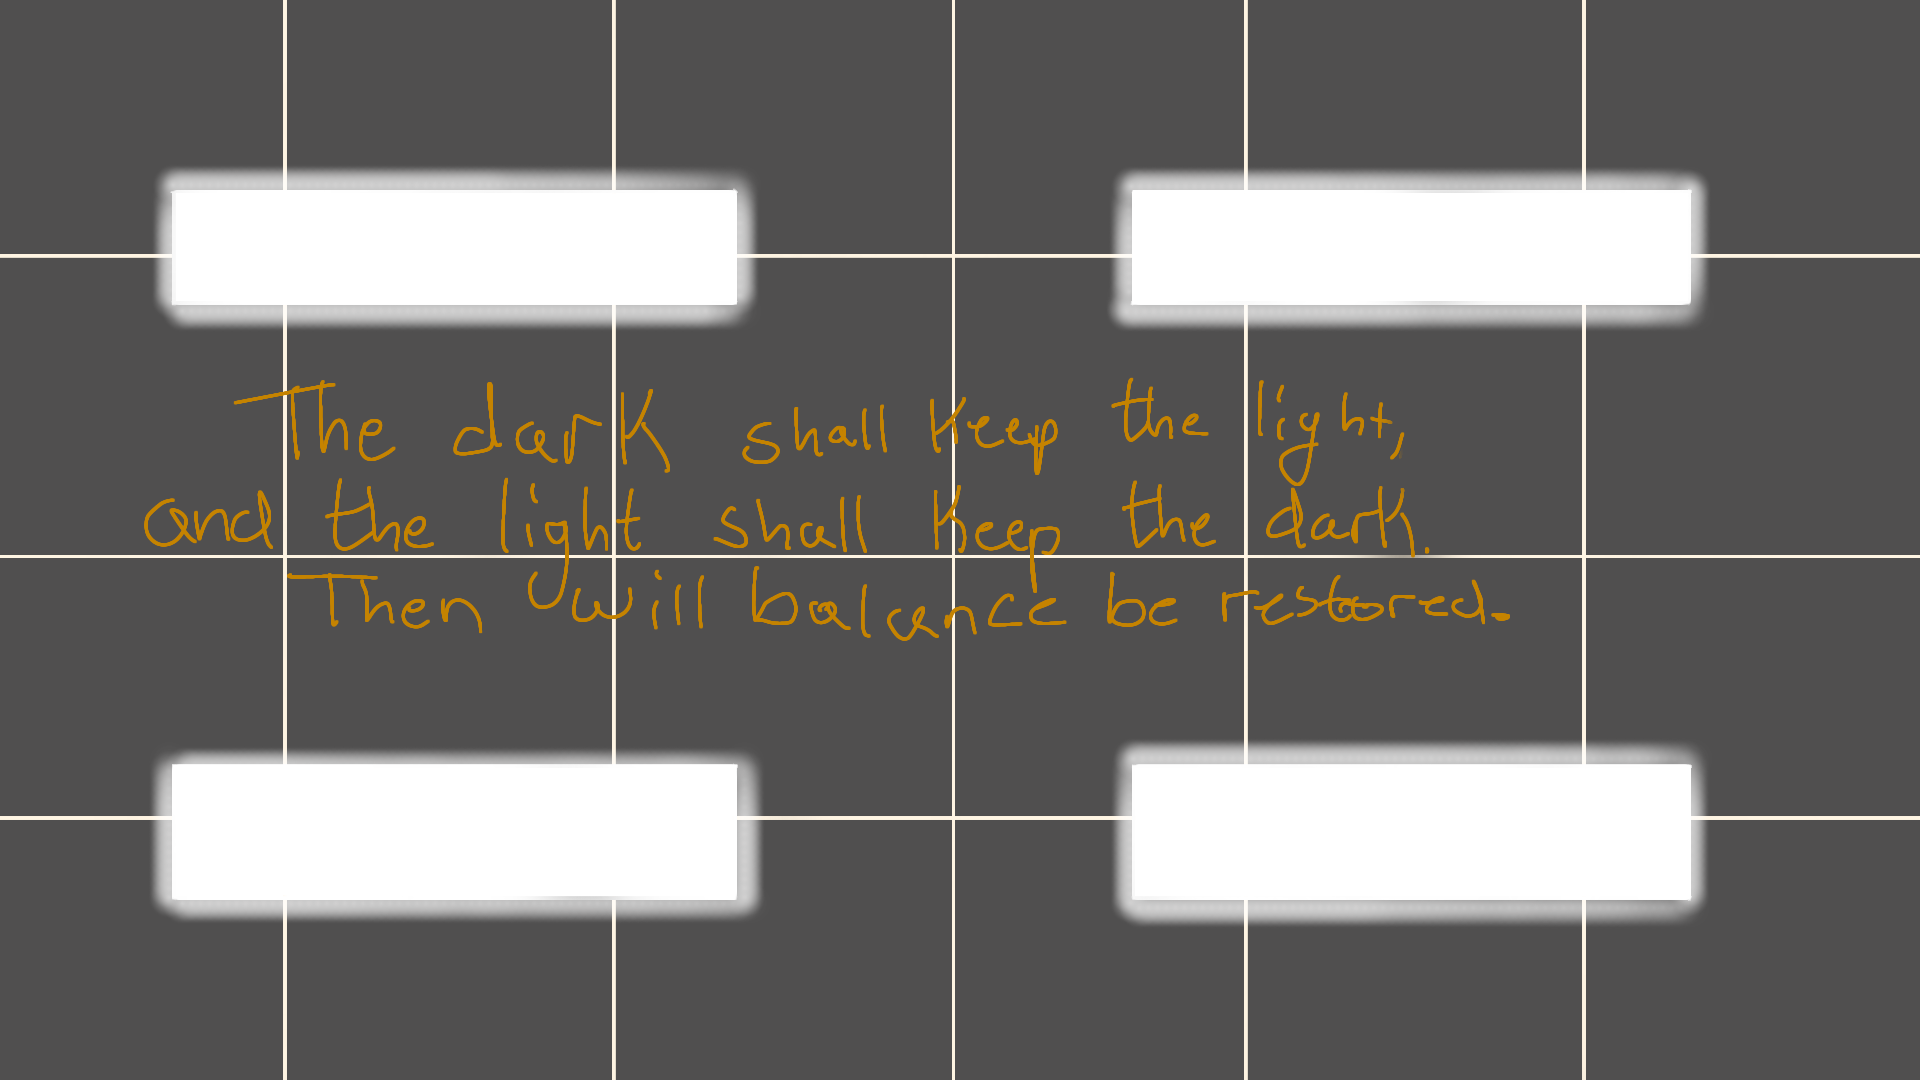 The dark shall keep the light,
and the light shall keep the dark.
Then will balance be restored.